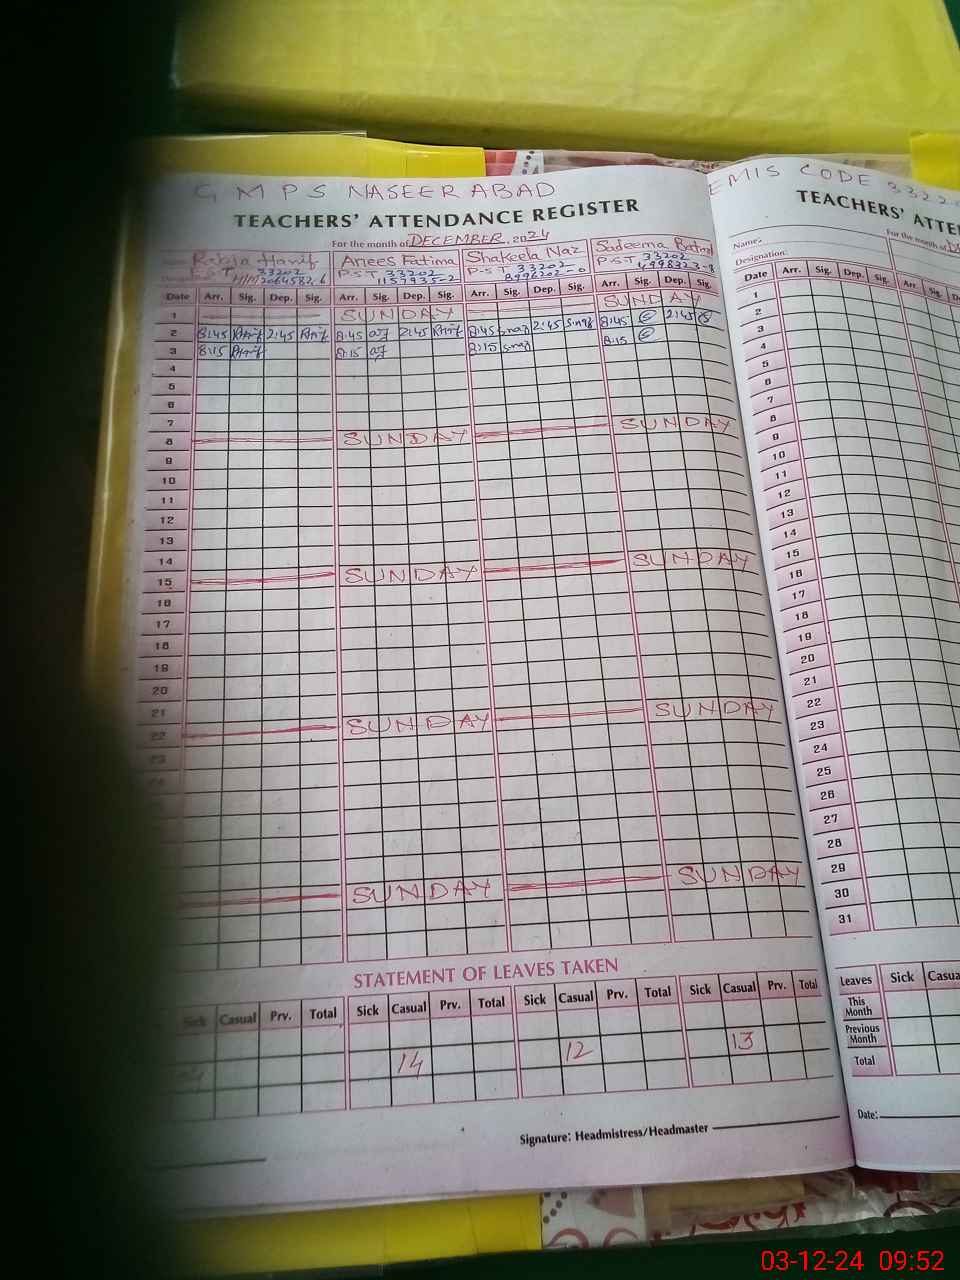 G M P S NASEERABAD
TEACHERS' ATTENDANCE REGISTER
For the month of DECEMBER, 2024
Rabia Hanif Anees Fatima Shakeela Naz Sadeema Batool
P.S.T 33202 P.S.T 33202 P-S-T 33202 P.S.T 33202
1137935-2 8998202-0
Date Arr. Sig. Dep. Sig. Arr. Sig. Dep. Sig. Arr. Sig. Dep. Sig. Arr. Sig. Dep. Sig.
1 SUNDAY SUNDAY
2 8:45 2:45 8:45 2:45 8:45 2:45 8:45 2:45
3 8:15 8:15 8:15 8:15
4
5
6
7
8 SUNDAY SUNDAY
9
10
11
12
13
14
15 SUNDAY SUNDAY
16
17
18
19
20
21
22 SUNDAY SUNDAY
23
24
SUNDAY SUNDAY
STATEMENT OF LEAVES TAKEN
Sick Casual Prv. Total Sick Casual Prv. Total Sick Casual Prv. Total Sick Casual Prv. Total
14 12 13
Signature: Headmistress/Headmaster
EMIS CODE 3322
TEACHERS' ATTE
For the month of
Name:
Designation:
Date Arr. Sig. Dep. Sig.
1
2
3
4
5
6
7
8
9
10
11
12
13
14
15
16
17
18
19
20
21
22
23
24
25
26
27
28
29
30
31
Leaves Sick Casua
This Month
Previous Month
Total
Date:
03-12-24 09:52